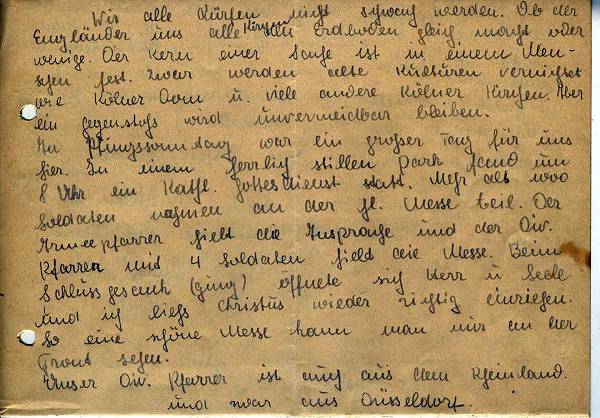 Wir alle dürfen nicht schwach werden. Ob der
Engländer uns alle Kirchen dem Erdboden gleich macht oder
wenige. Der Kern einer Sache ist in einem Men-
schen fest. Zwar werden alte Kulturen vernichtet
wie Kölner Dom u. viele andere Kölner Kirchen. Aber
ein Gegenstoss wird unvermeidbar bleiben.
Pfingssonntag war ein großer Tag für uns
hier. In einem herrlich stillen Park fand um
8 Uhr ein Kath. Gottesdienst statt. Mehr als 1000
Soldaten nahmen an der hl. Messe teil. Der
Armeepfarrer hielt die Ansprache und der Div.
Pfarrer mit 4 Soldaten hielt die Messe. Beim
Schlussgesang öffnete sich Herz u Seele
und ich liess Christus wieder richtig einziehen.
So eine schöne Messe kann man nur an der
Front sehen.
Unser Div. Pfarrer ist auch aus dem Rheinland.
und zwar aus Düsseldorf.